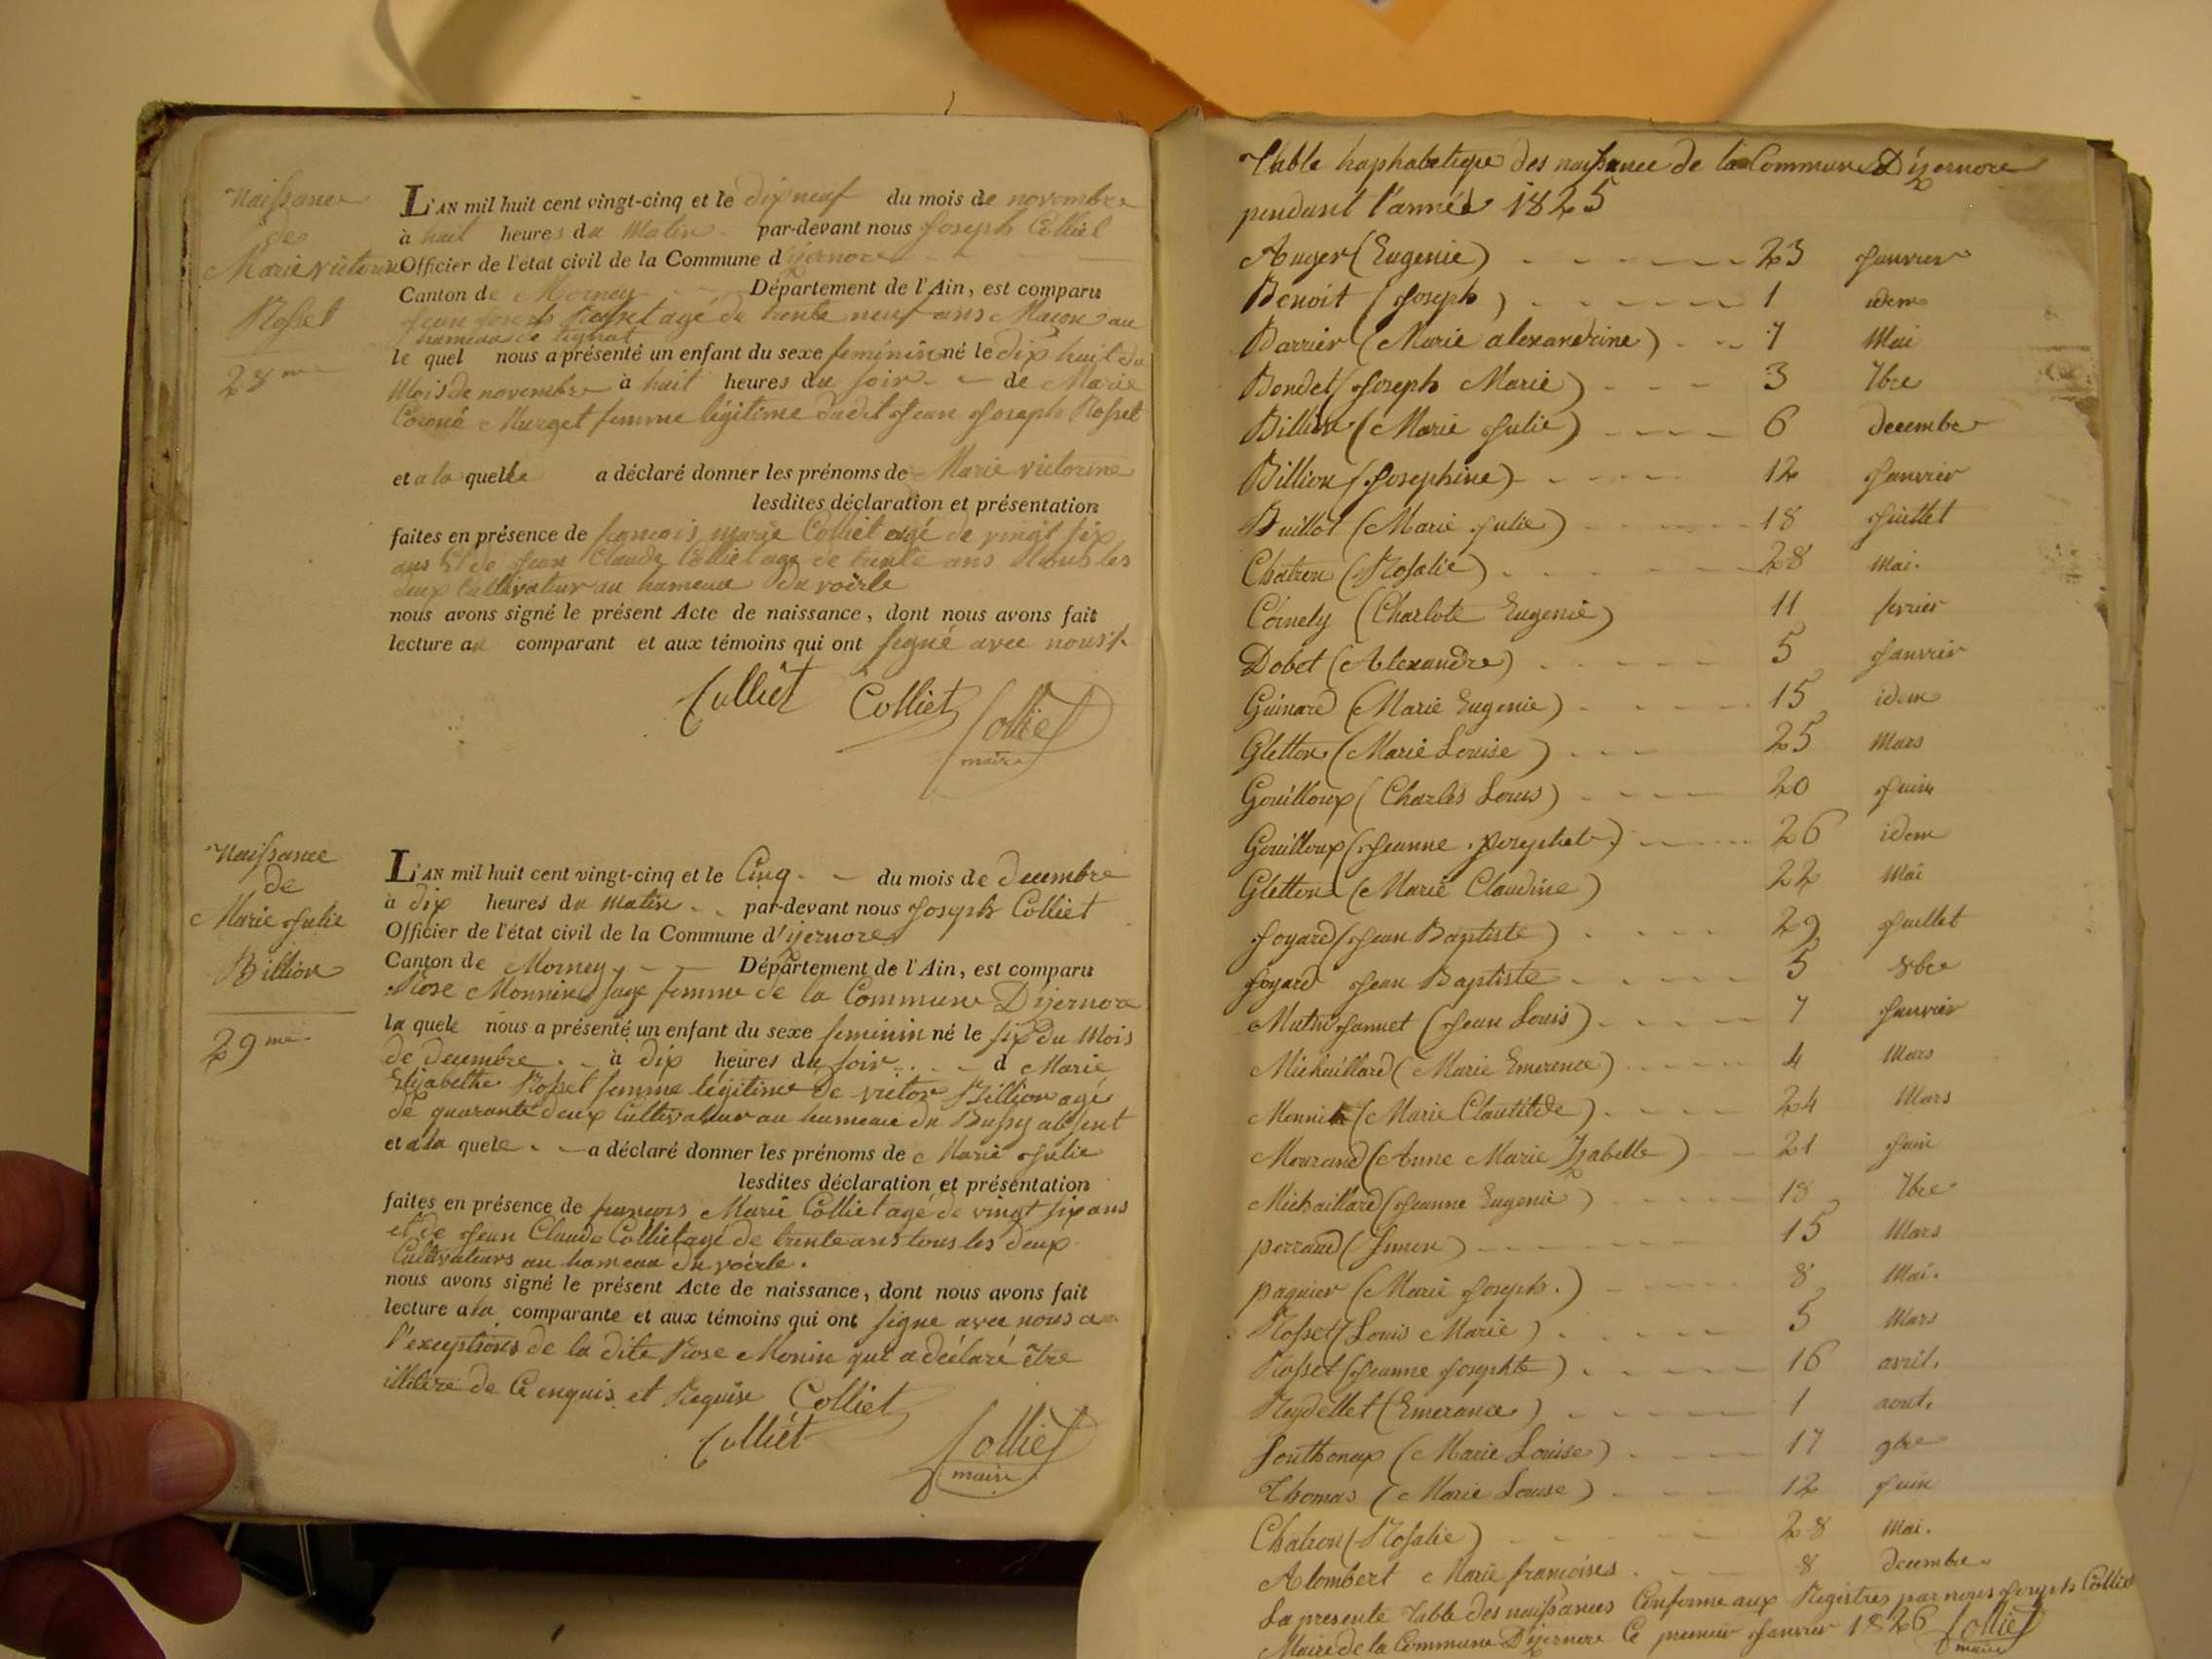 Naissance
de
Marie victorine
Rosset
28me
L'AN mil huit cent vingt-cinq et le dix neuf du mois de novembre
à huit heures du Matin par-devant nous Joseph Colliet
Officier de l'état civil de la Commune d'yzernore
Canton de Mornay Département de l'Ain, est comparu
Jean Joseph Rosset agé de trente neuf ans Macon au
hameau de
le quel nous a présenté un enfant du sexe feminin né le dix huit du
Mois de novembre à huit heures du soir de Marie
Murget femme légitime dudit Jean Joseph Rosset
et a la quelle a déclaré donner les prénoms de Marie victorine
lesdites déclaration et présentation
faites en présence de francois marie Colliet agé de vingt six
ans Et de Jean Claude Colliet age de trente ans Tous les
deux Cultivateur au hameau du voërle
nous avons signé le présent Acte de naissance, dont nous avons fait
lecture au comparant et aux témoins qui ont signé avec nous
Colliet Colliet Colliet
maire
Naissance
de
Marie Julie
Billion
29me
L'AN mil huit cent vingt-cinq et le Cinq du mois de decembre
à dix heures du matin par-devant nous Joseph Colliet
Officier de l'état civil de la Commune d'yzernore
Canton de Mornay Département de l'Ain, est comparu
Rose Monnin sage femme de la Commune D'izernore
la quele nous a présenté un enfant du sexe feminin né le six du Mois
de decembre à dix heures du soir d Marie
Elizabethe Rosset femme légitime de victor Billion agé
de quarante deux Cultivateur au hameau du Bussy absent
et a la quele a déclaré donner les prénoms de Marie Julie
lesdites déclaration et présentation
faites en présence de francois Marie Colliet agé de vingt six ans
et de Jean Claude Colliet agé de trente ans tous les deux
Cultivateurs au hameau du voërle.
nous avons signé le présent Acte de naissance, dont nous avons fait
lecture a la comparante et aux témoins qui ont signe avec nous a
l'exceptions de la dite Rose Monin qui a déclaré être
illitére de Ce enquis et Requise Colliet
Colliet Colliet
maire
Table haphabetique des naissance de la Commune D'izernore
pendant l'année 1825
Auger (Eugenie) 23 Janvier
Benoit (Joseph) 1 idem
Barrier (Marie alexandrine) 7 Mai
Bondet (Joseph Marie) 3 7bre
Billion (Marie Julie) 6 decembre
Billion (Josephine) 12 Janvier
Buillot (Marie Julie) 18 Juillet
Chatron (Rosalie) 28 Mai.
Coinety (Charlote Eugenie) 11 fevrier
Dobet (Alexandre) 5 Janvier
Guinard (Marie Eugenie) 15 idem
Gletton (Marie Louise) 25 Mars
Gouilloux (Charles Louis) 20 Juin
Gouilloux (Jeanne Josephete) 26 idem
Gletton (Marie Claudine) 22 Mai
Joyard (Jean Baptiste) 29 Juillet
Joyard Jean Baptiste 5 8bre
Mutin Jannet (Jean Louis) 7 Janvier
Michaillard (Marie Emerence) 4 Mars
Monnin (Marie Clautilde) 24 Mars
Mourand (Anne Marie Izabelle) 21 Juin
Michaillard (Jeanne Eugenie) 18 7bre
perraud (Simon) 15 Mars
paquier (Marie Joseph.) 8 Mai.
Rosset (Louis Marie) 5 Mars
Rosset (Jeanne Josephte) 16 avril.
Reydellet (Emerance) 1 aout.
Southonax (Marie Louise) 17 9bre
Thomas (Marie Louise) 12 Juin
Chatron (Rosalie) 28 Mai.
Alombert Marie francoises 8 decembre
La presente Table des naissances Conforme aux Registres par nous Joseph Colliet
Maire de la Commune D'izernore Ce premier Janvier 1826 Colliet
maire